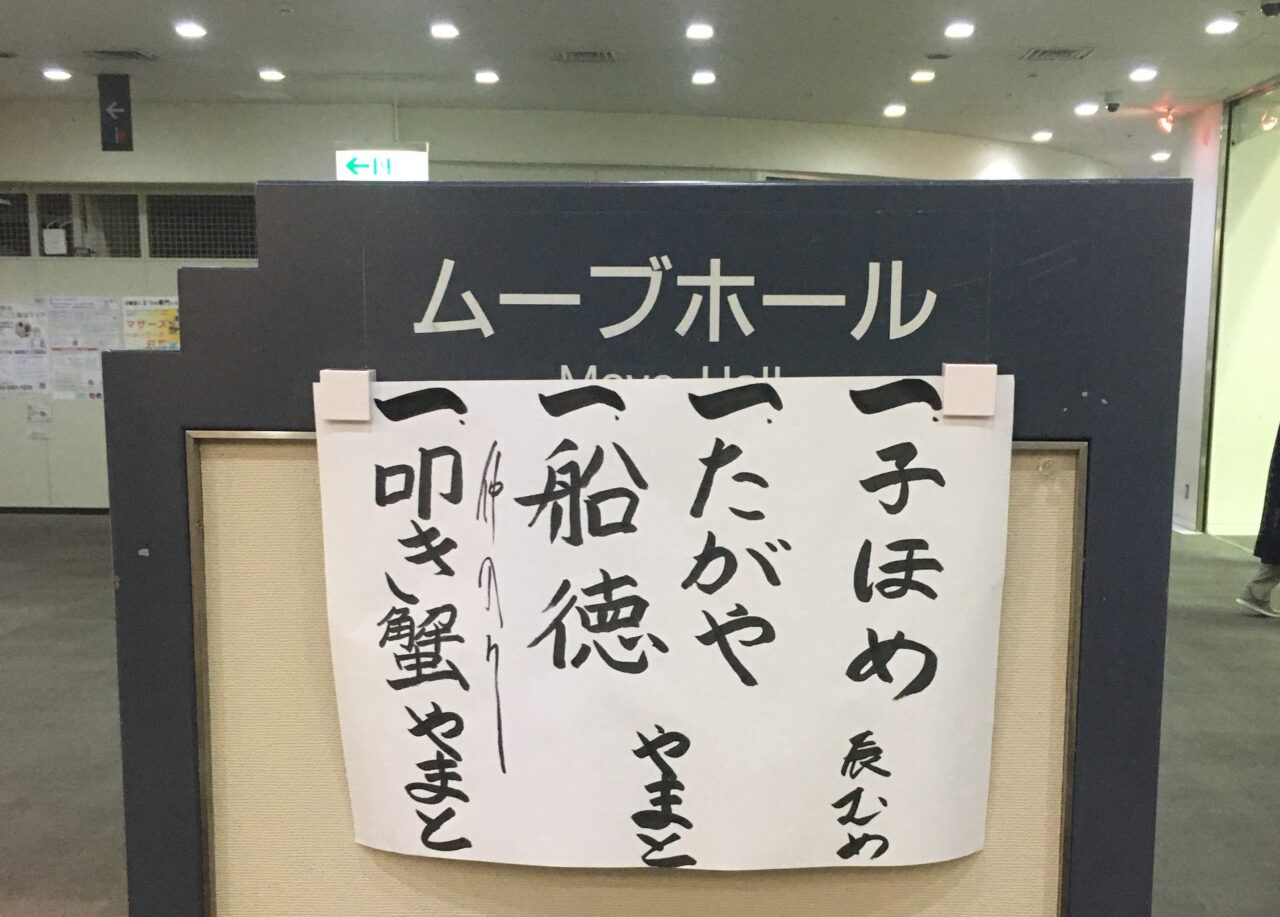 ムーブホール
Move Hall
一、子ほめ 辰むめ
一、たがや
一、船徳
やまと
仲入り
一、叩き蟹 やまと
マザーズ